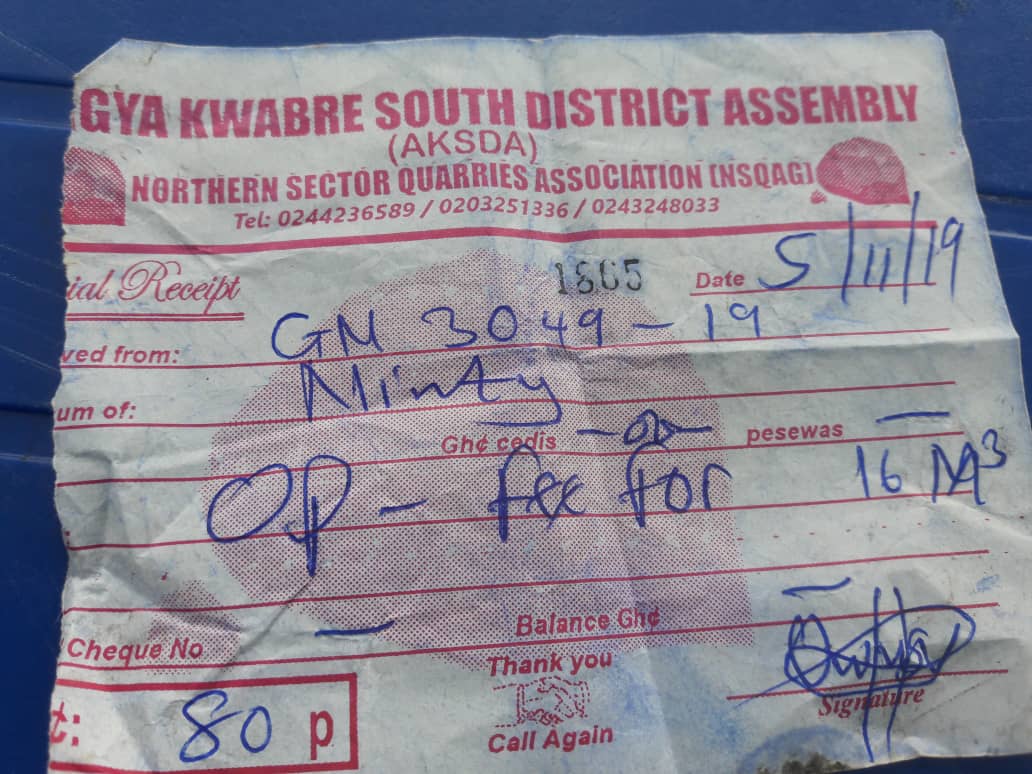 GYA KWABRE SOUTH DISTRICT ASSEMBLY
(AKSDA)
NORTHERN SECTOR QUARRIES ASSOCIATION (NSQAG)
Tel: 0244236589 / 0203251336 / 0243248033
ial Receipt 1865 Date 5/11/19
ved from: GM 3049 - 19
um of: Minty
Gh¢ cedis pesewas —
OP - fee for 16 M³
Cheque No — Balance Gh¢ —
Thank you
Signature
t: 80 p
Call Again